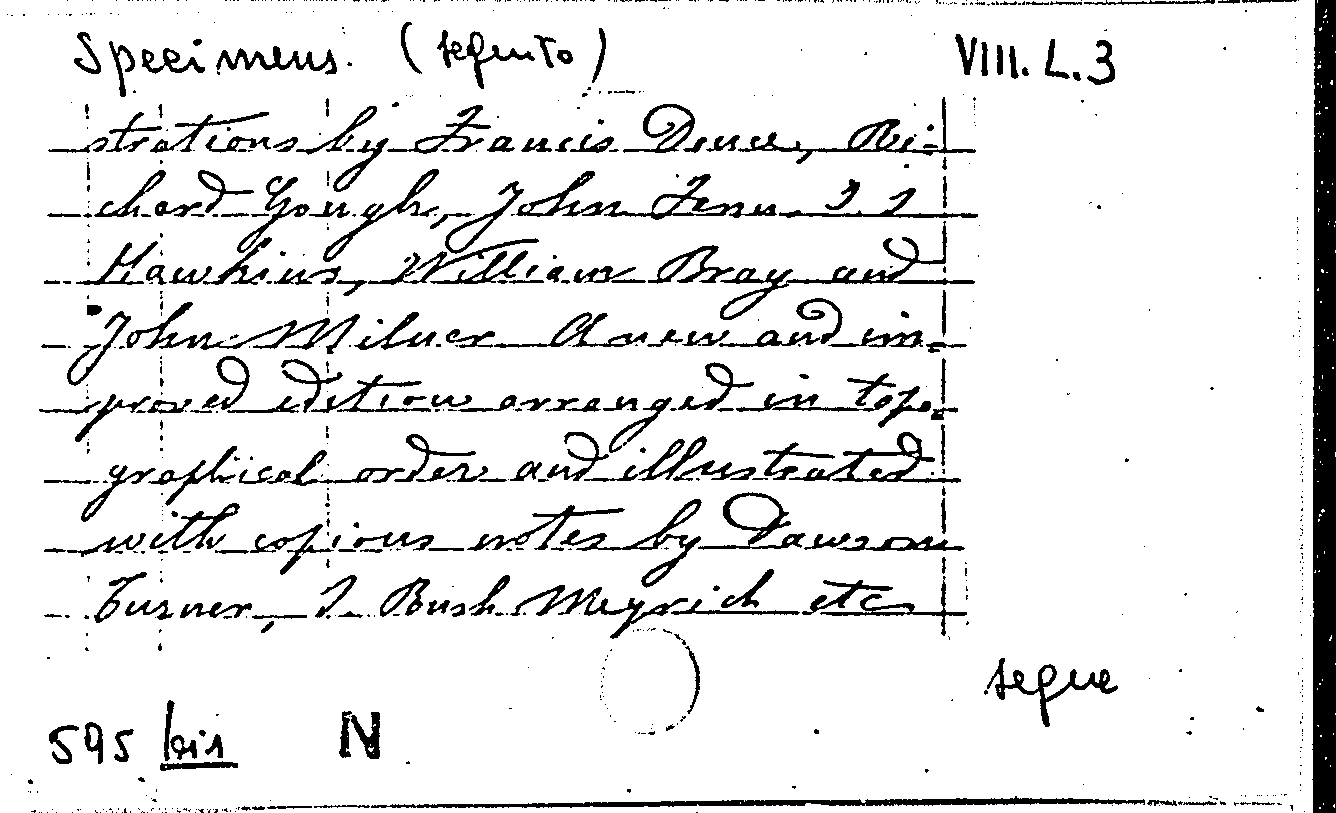 Specimens. (seguito) VIII. L. 3
strations by Francis Douce, Ri-
chard Gough, John Fenn. J. S
Hawkins, William Bray and
John Milner A new and im-
proved edition arranged in topo-
graphical order and illustrated
with copious notes by Dawson
Turner, S. Bush Meyrich etc
segue
595 bis N